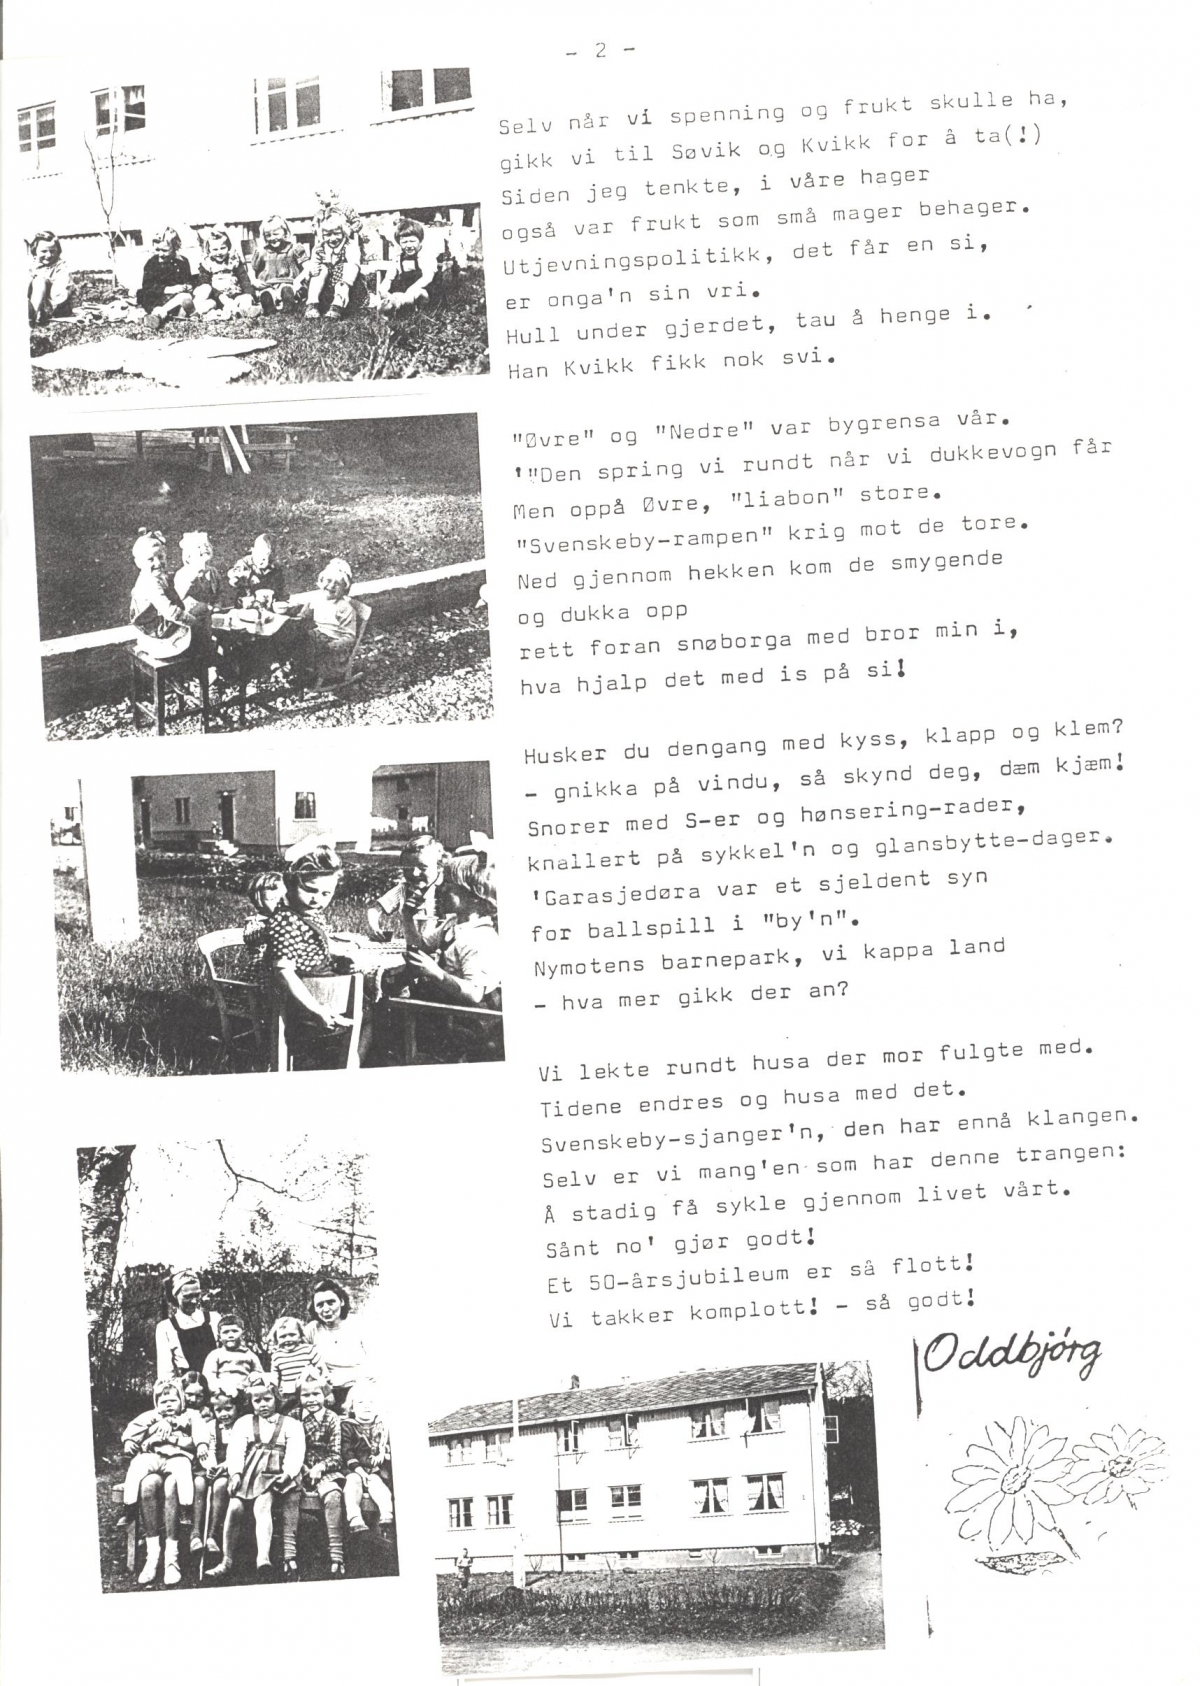 - 2 -
Selv når vi spenning og frukt skulle ha,
gikk vi til Søvik og Kvikk for å ta(!)
Siden jeg tenkte, i våre hager
også var frukt som små mager behager.
Utjevningspolitikk, det får en si,
er onga'n sin vri.
Hull under gjerdet, tau å henge i.
Han Kvikk fikk nok svi.
"Øvre" og "Nedre" var bygrensa vår.
'"Den spring vi rundt når vi dukkevogn får
Men oppå Øvre, "liabon" store.
"Svenskeby-rampen" krig mot de tore.
Ned gjennom hekken kom de smygende
og dukka opp
rett foran snøborga med bror min i,
hva hjalp det med is på si!
Husker du dengang med kyss, klapp og klem?
- gnikka på vindu, så skynd deg, dæm kjæm!
Snorer med S-er og hønsering-rader,
knallert på sykkel'n og glansbytte-dager.
'Garasjedøra var et sjeldent syn
for ballspill i "by'n".
Nymotens barnepark, vi kappa land
- hva mer gikk der an?
Vi lekte rundt husa der mor fulgte med.
Tidene endres og husa med det.
Svenskeby-sjanger'n, den har ennå klangen.
Selv er vi mang'en som har denne trangen:
Å stadig få sykle gjennom livet vårt.
Sånt no' gjør godt!
Et 50-årsjubileum er så flott!
Vi takker komplott! - så godt!
Oddbjórg